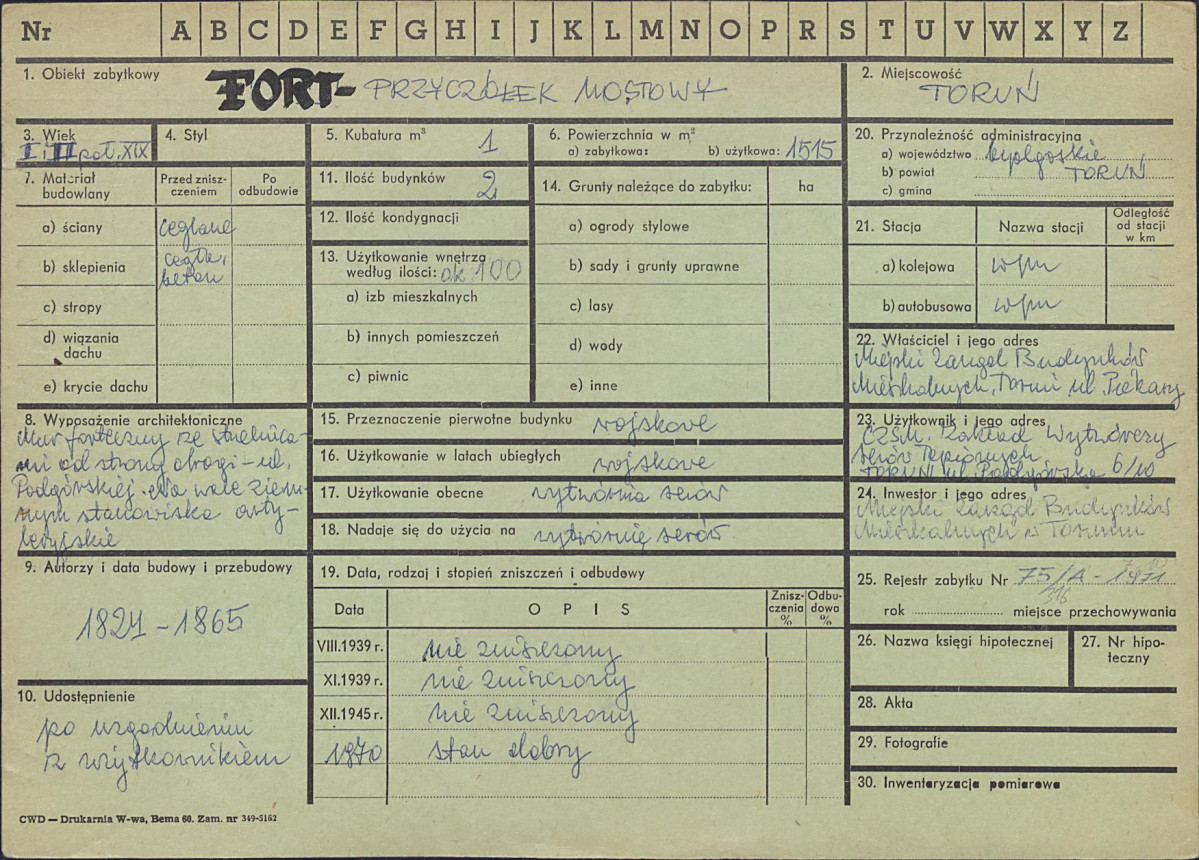 Nr A B C D E F G H I J K L M N O P R S T U V W X Y Z
1. Obiekt zabytkowy
FORT- PRZYCZÓŁEK MOSTOWY
2. Miejscowość
TORUŃ
3. Wiek
I i II poł. XIX
4. Styl
5. Kubatura m³
1
6. Powierzchnia w m²
a) zabytkowa: b) użytkowa: 1515
20. Przynależność administracyjna
a) województwo bydgoskie
b) powiat TORUŃ
c) gmina
7. Materiał budowlany
Przed zniszczeniem
Po odbudowie
a) ściany ceglane
b) sklepienia cegła, beton
c) stropy
d) wiązania dachu
e) krycie dachu
11. Ilość budynków 2
12. Ilość kondygnacji
13. Użytkowanie wnętrza
według ilości: ok. 100
a) izb mieszkalnych
b) innych pomieszczeń
c) piwnic
14. Grunty należące do zabytku: ha
a) ogrody stylowe
b) sady i grunty uprawne
c) lasy
d) wody
e) inne
21. Stacja
Nazwa stacji
Odległość
od stacji
w km
a) kolejowa w/m
b) autobusowa w/m
22. Właściciel i jego adres
Miejski Zarząd Budynków
Mieszkalnych, Toruń ul. Piekary
8. Wyposażenie architektoniczne
Mur forteczny ze strzelnica-
mi od strony drogi - ul.
Podgórskiej. Na wale ziem-
nym stanowiska arty-
leryjskie
15. Przeznaczenie pierwotne budynku wojskowe
16. Użytkowanie w latach ubiegłych wojskowe
17. Użytkowanie obecne wytwórnia serów
18. Nadaje się do użycia na wytwórnię serów
23. Użytkownik i jego adres
CZSM. Zakład Wytwórczy
Serów Topionych
TORUŃ ul. Podgórska 6/10
24. Inwestor i jego adres
Miejski Zarząd Budynków
Mieszkalnych w Toruniu
9. Autorzy i data budowy i przebudowy
1824 - 1865
10. Udostępnienie
po uzgodnieniu
z użytkownikiem
19. Data, rodzaj i stopień zniszczeń i odbudowy
Data
OPIS
Zniszczenia %
Odbudowa %
VIII.1939 r. nie zniszczony
XI.1939 r. nie zniszczony
XII.1945 r. nie zniszczony
1970 stan dobry
25. Rejestr zabytku Nr 75/A - 1971
rok miejsce przechowywania
26. Nazwa księgi hipotecznej
27. Nr hipo-
teczny
28. Akta
29. Fotografie
30. Inwentaryzacja pomiarowa
CWD — Drukarnia W-wa, Bema 60. Zam. nr 349-5162